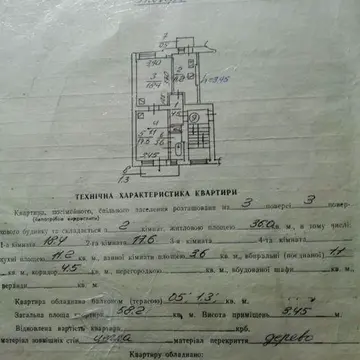 7
05
3.90
2
3
18.4
h=3.45
1
4
17.6
6
3.6
2.45
8
1.3
ТЕХНІЧНА ХАРАКТЕРИСТИКА КВАРТИРИ
Квартира, посімейного, спільного заселення розташована на 3 поверсі 3 повер-
(непотрібне викреслити)
хового будинку та складається з 2 кімнат, житловою площею 36.0 кв. м, в тому числі:
1-а кімната 18.4 2-га кімната 17.6 3-я кімната 4-та кімната
кухні площею 11.2 кв. м, ванної кімнати площею 3.6 кв. м, вбиральні (поєднаної) 1.1
кв. м, коридор 4.5 кв. м, перегородкою кв. м, вбудованої шафи кв. м,
веранди кв. м.
Квартира обладнана балконом (терасою) 0.5, 1.3, кв. м.
Загальна площа квартири 58.2 кв. м. Висота приміщень 3.45 м.
Відновлена вартість квартири крб.
матеріал зовнішніх стін матеріал перекриття дерево
Квартиру обладнано: